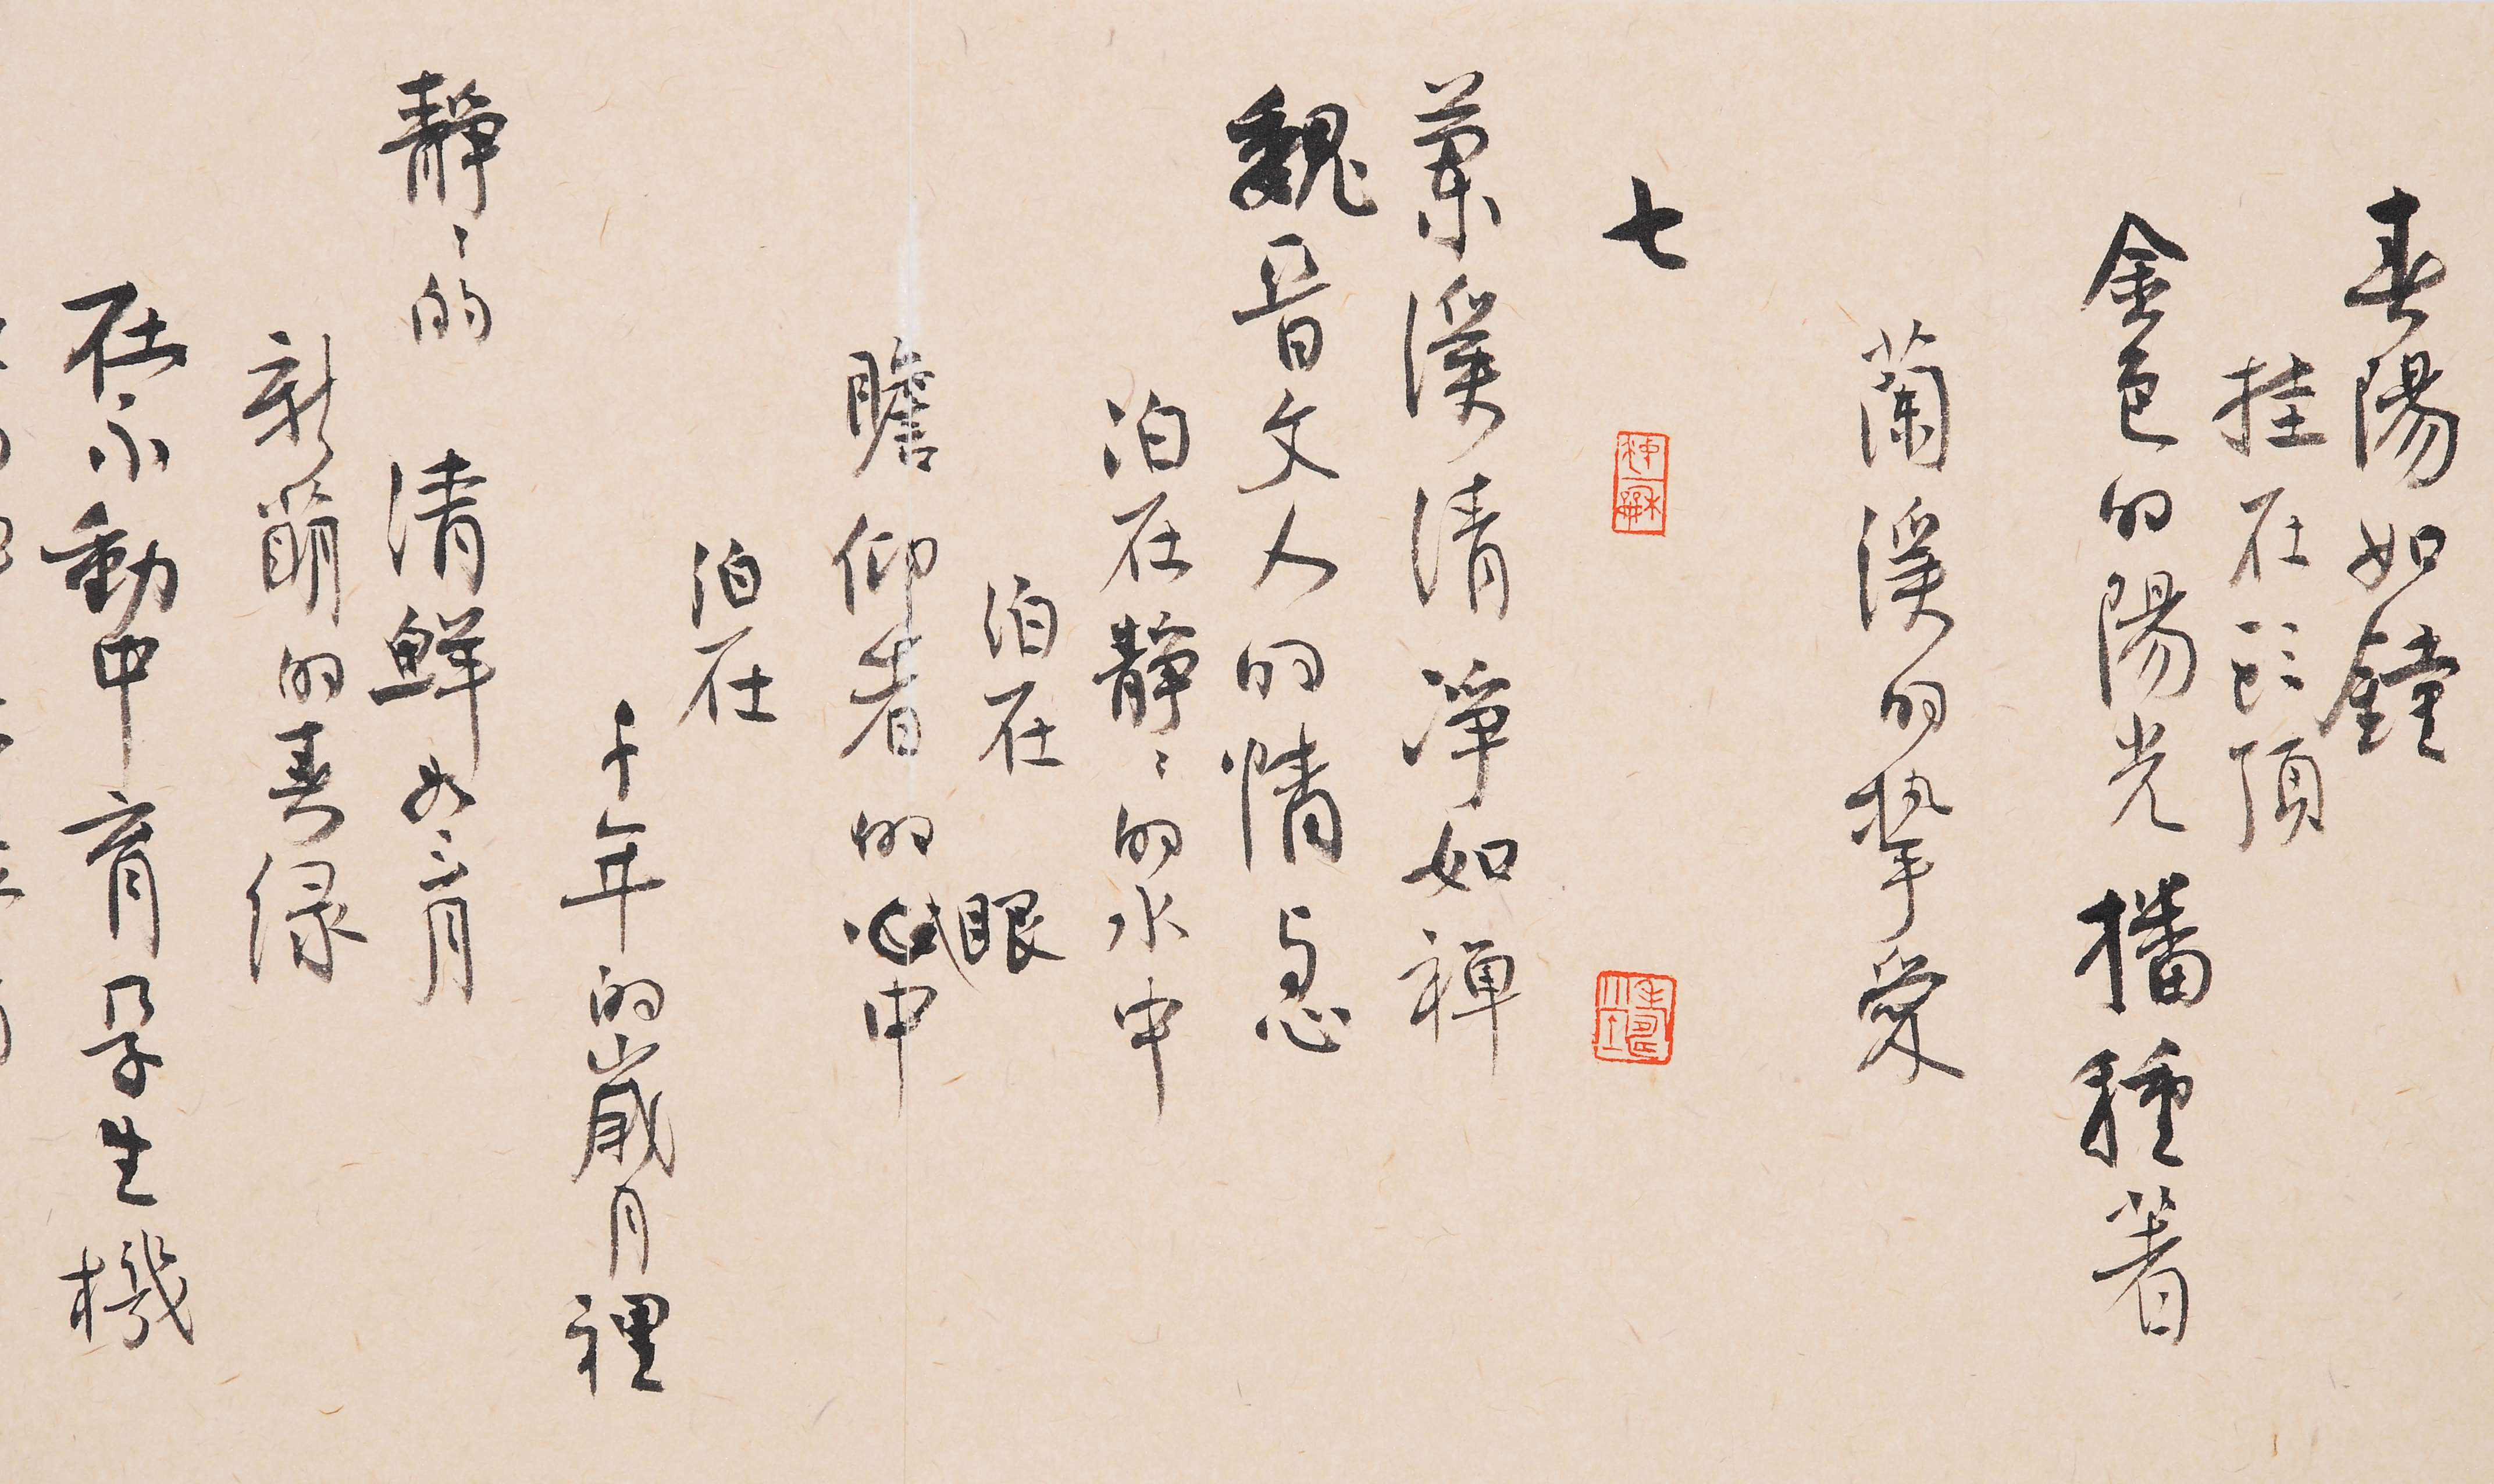 春陽如鐘
挂在頭頂
金色的陽光播種着
蘭溪的摯愛
七
蘭溪清凈如禅
魏晋文人的情与忌
泊在靜々的水中
泊在 眼
瞻仰者的心中
泊在
千年的歲月裡
靜々的 清鮮如二月
新萌的春绿
在不動中育孕生機